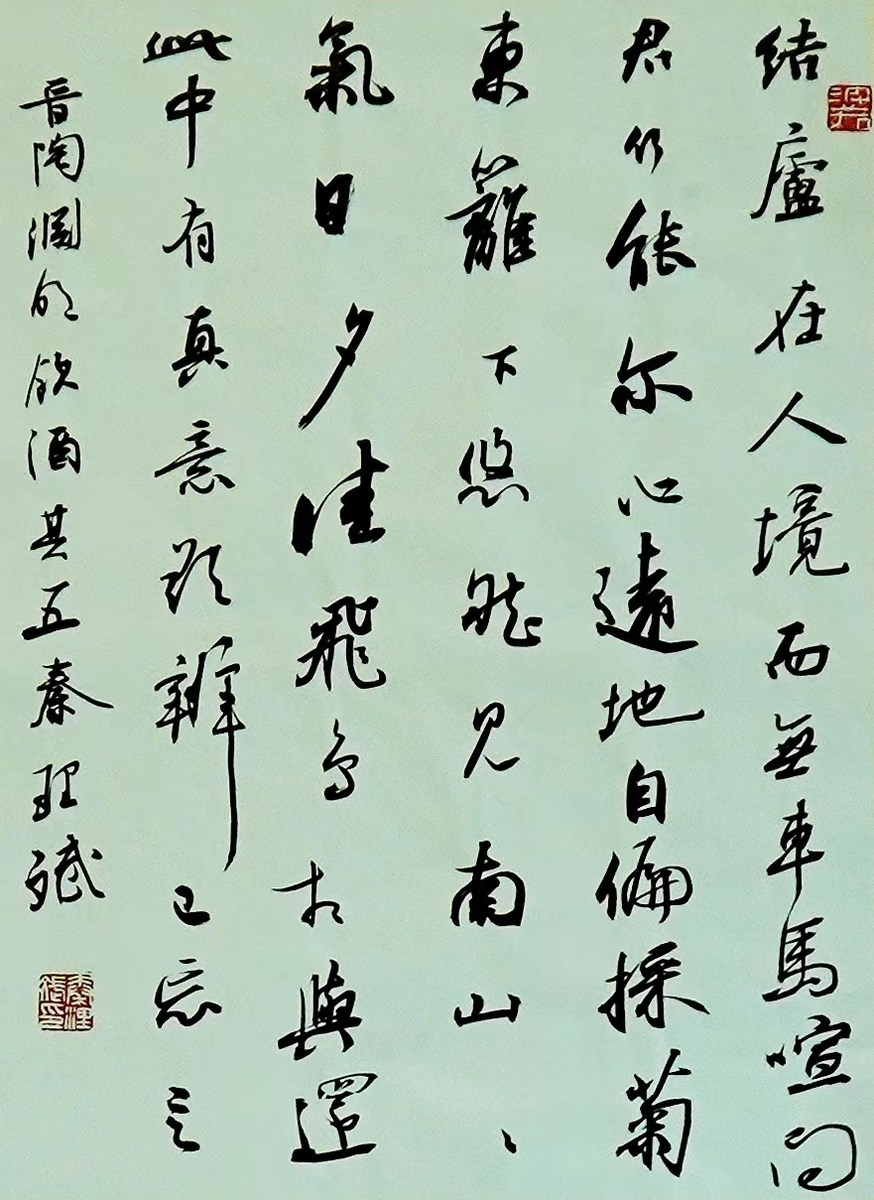 結廬在人境而無車馬喧問
君何能尔心遠地自偏採菊
東籬下悠然見南山山
氣日夕佳飛鳥相與還
此中有真意欲辨已忘言
晉陶淵明飲酒其五秦理斌